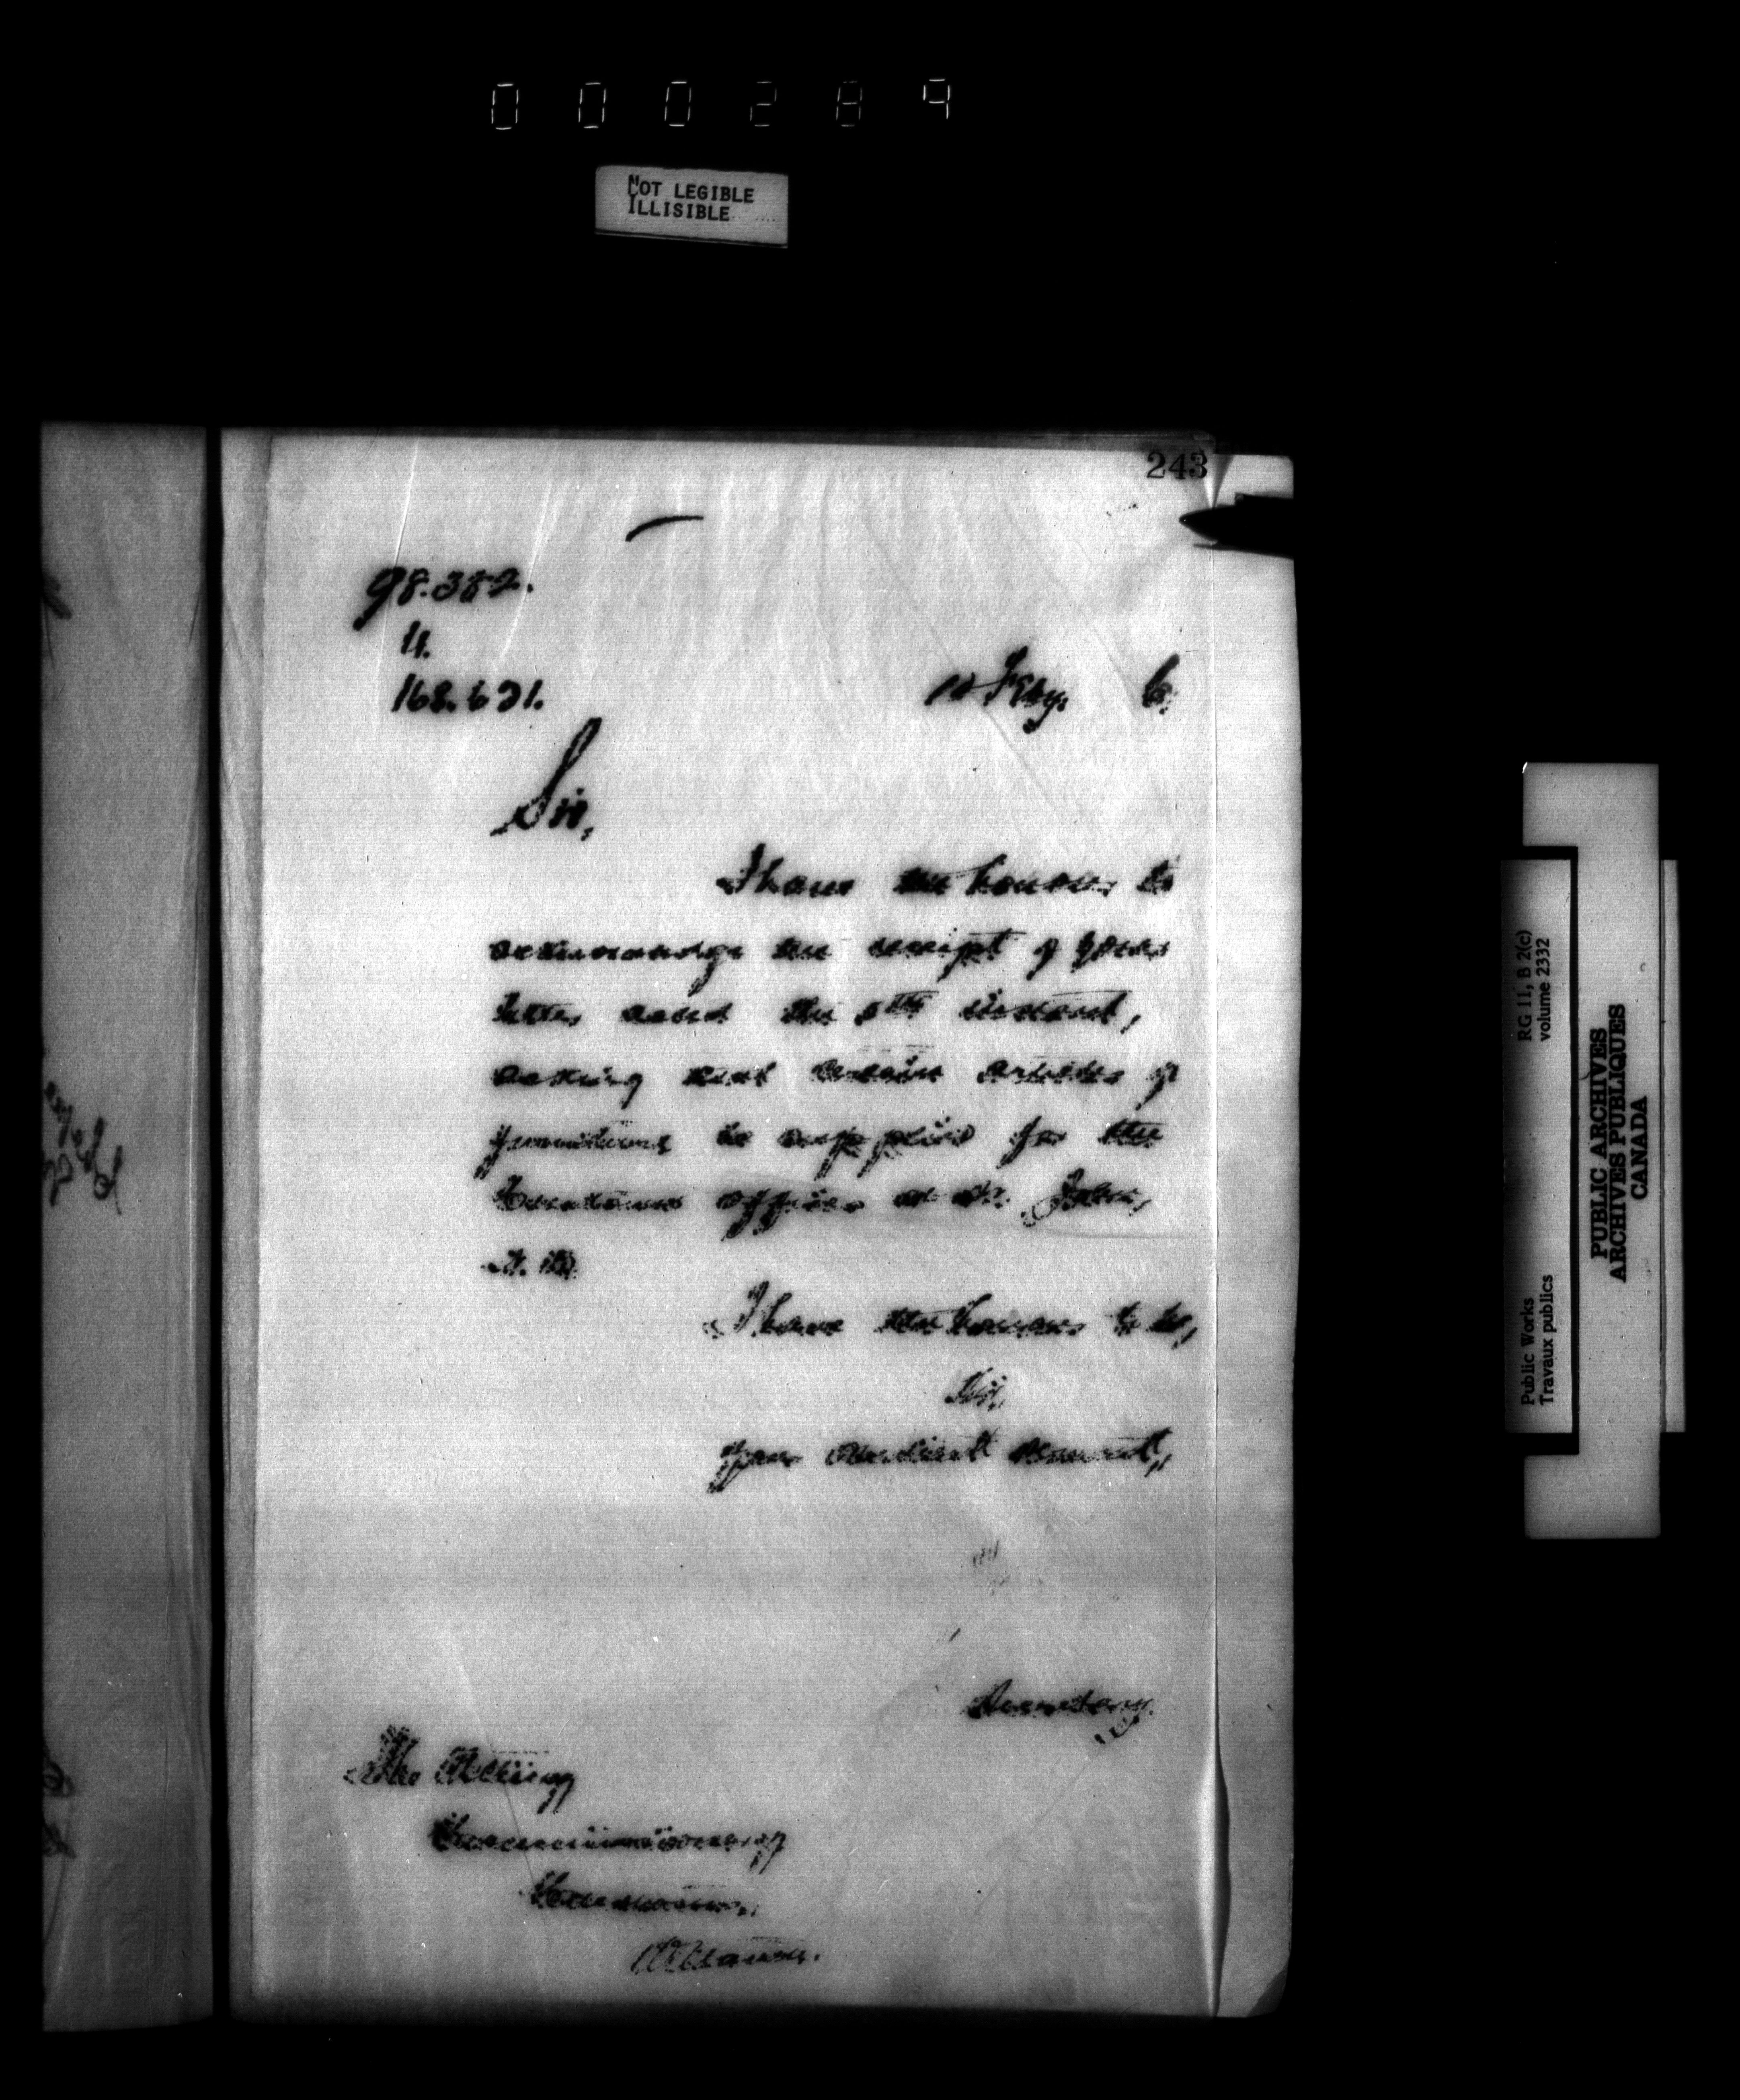 000289
NOT LEGIBLE
ILLISIBLE
243
98.382.
11.
168.621.
10 Feby. 6,
Sir,
I have the honour to
acknowledge the receipt of your
letter dated the 8th instant,
asking that certain articles of
furniture be supplied for the
Customs Offices at St. John,
N.B.
I have the honour to be,
Sir,
Your obedient servant,
Secretary.
The Acting
Commissioner of
Customs,
Ottawa.
Public Works
Travaux publics
RG 11, B 2(c)
volume 2332
PUBLIC ARCHIVES
ARCHIVES PUBLIQUES
CANADA